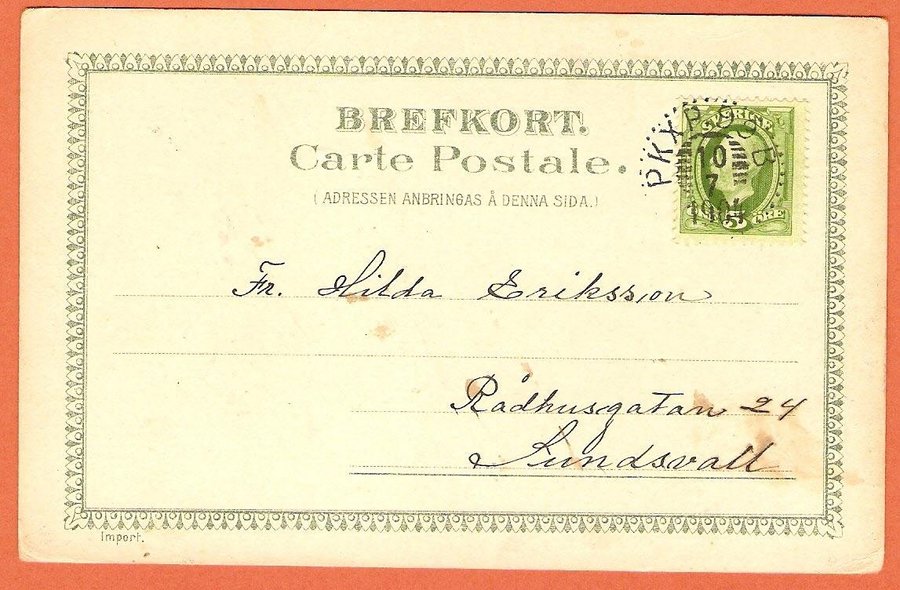 BREFKORT.
Carte Postale.
(ADRESSEN ANBRINGAS Å DENNA SIDA.)
SVERIGE
PKXP
B
10
7
5 ÖRE
Fr. Hilda Eriksson
Rådhusgatan 24
Sundsvall
Import.